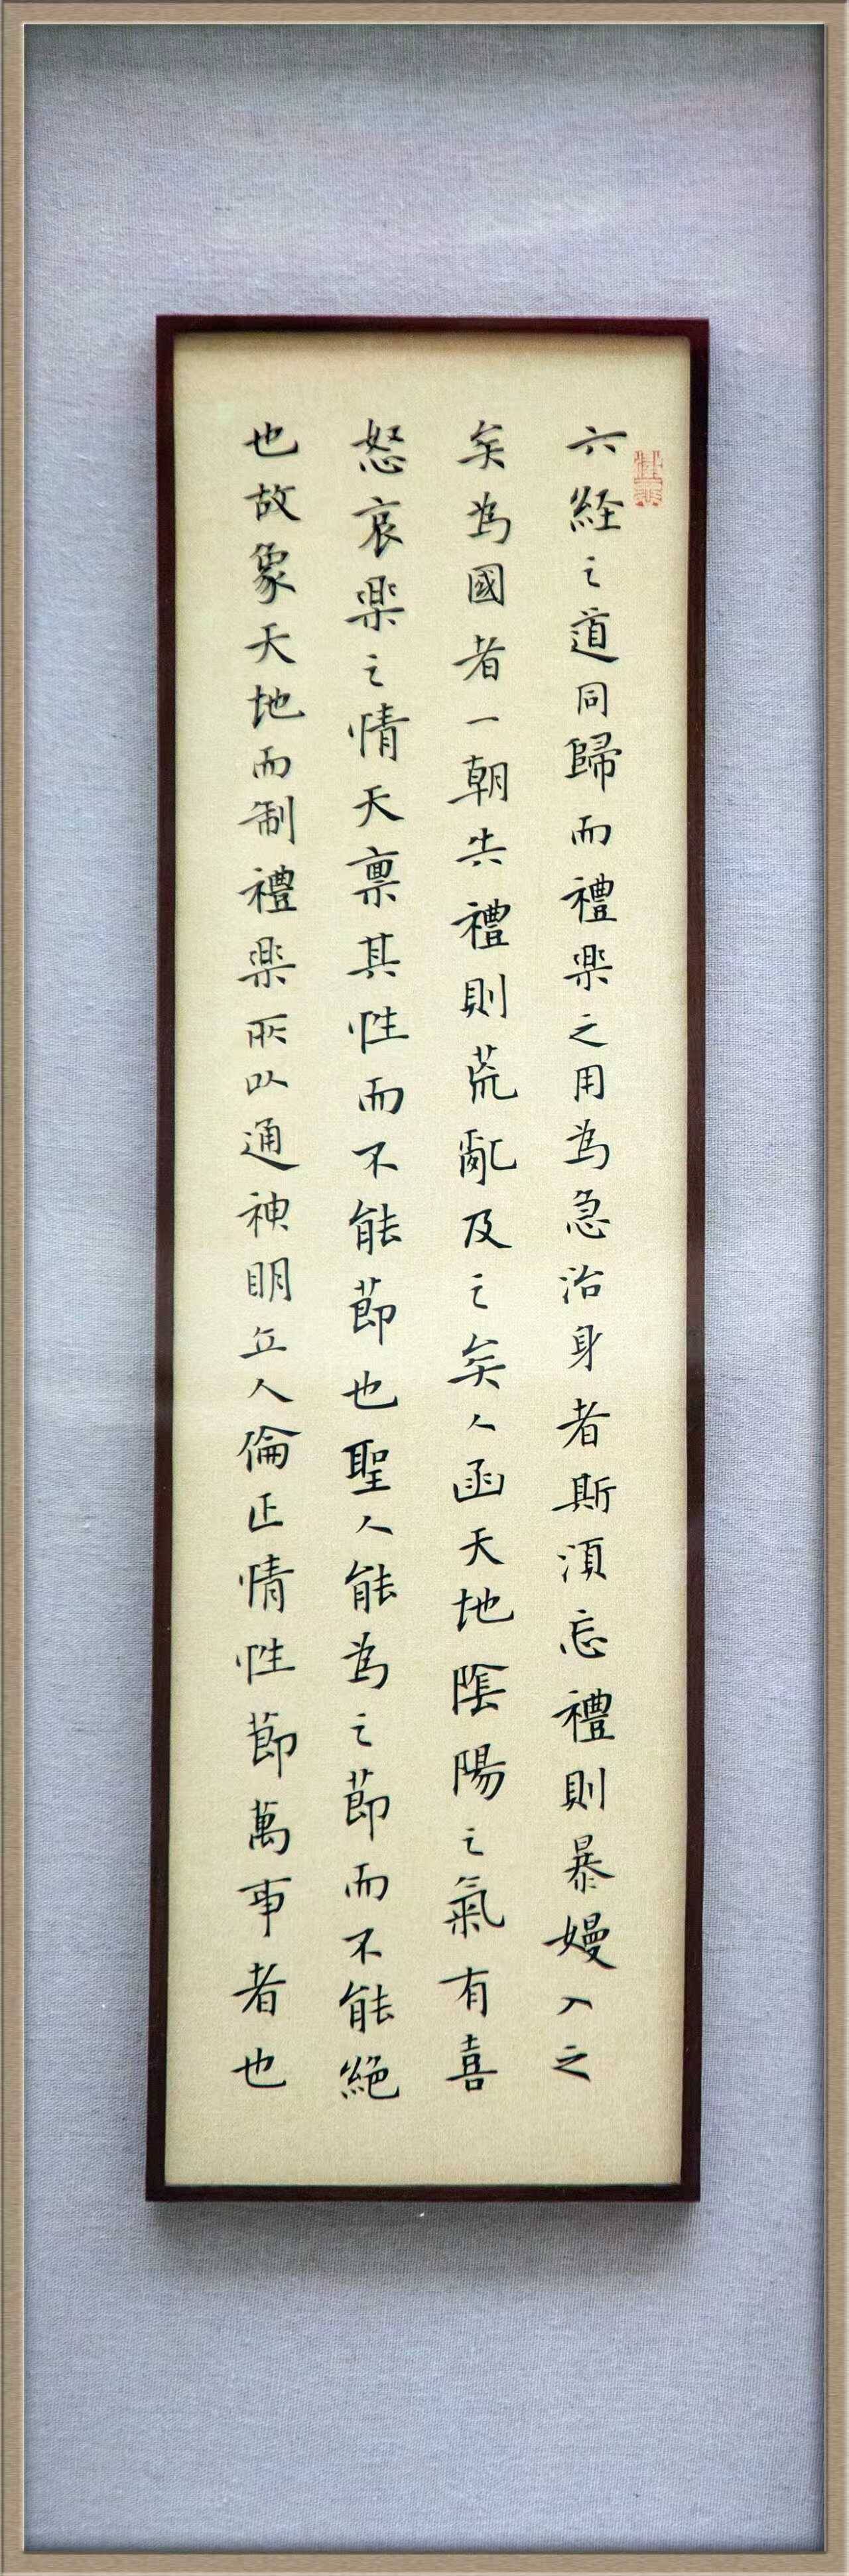 六経之道同歸而禮楽之用為急治身者斯湏忘禮則暴嫚入之
矣為國者一朝失禮則荒亂及之矣人函天地隂陽之氣有喜
怒哀楽之情天禀其性而不能節也聖人能為之節而不能絶
也故象天地而制禮楽所以通神明立人倫正情性節萬事者也